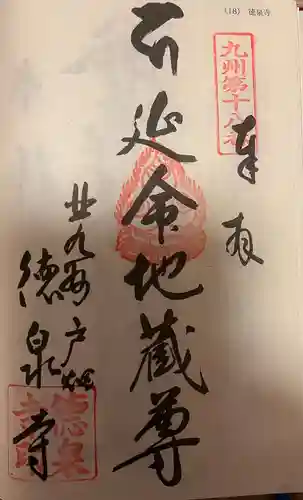 (18) 徳泉寺
九州第十八番
奉拝
延命地蔵尊
北九州戸畑
徳泉寺
徳泉
寺印